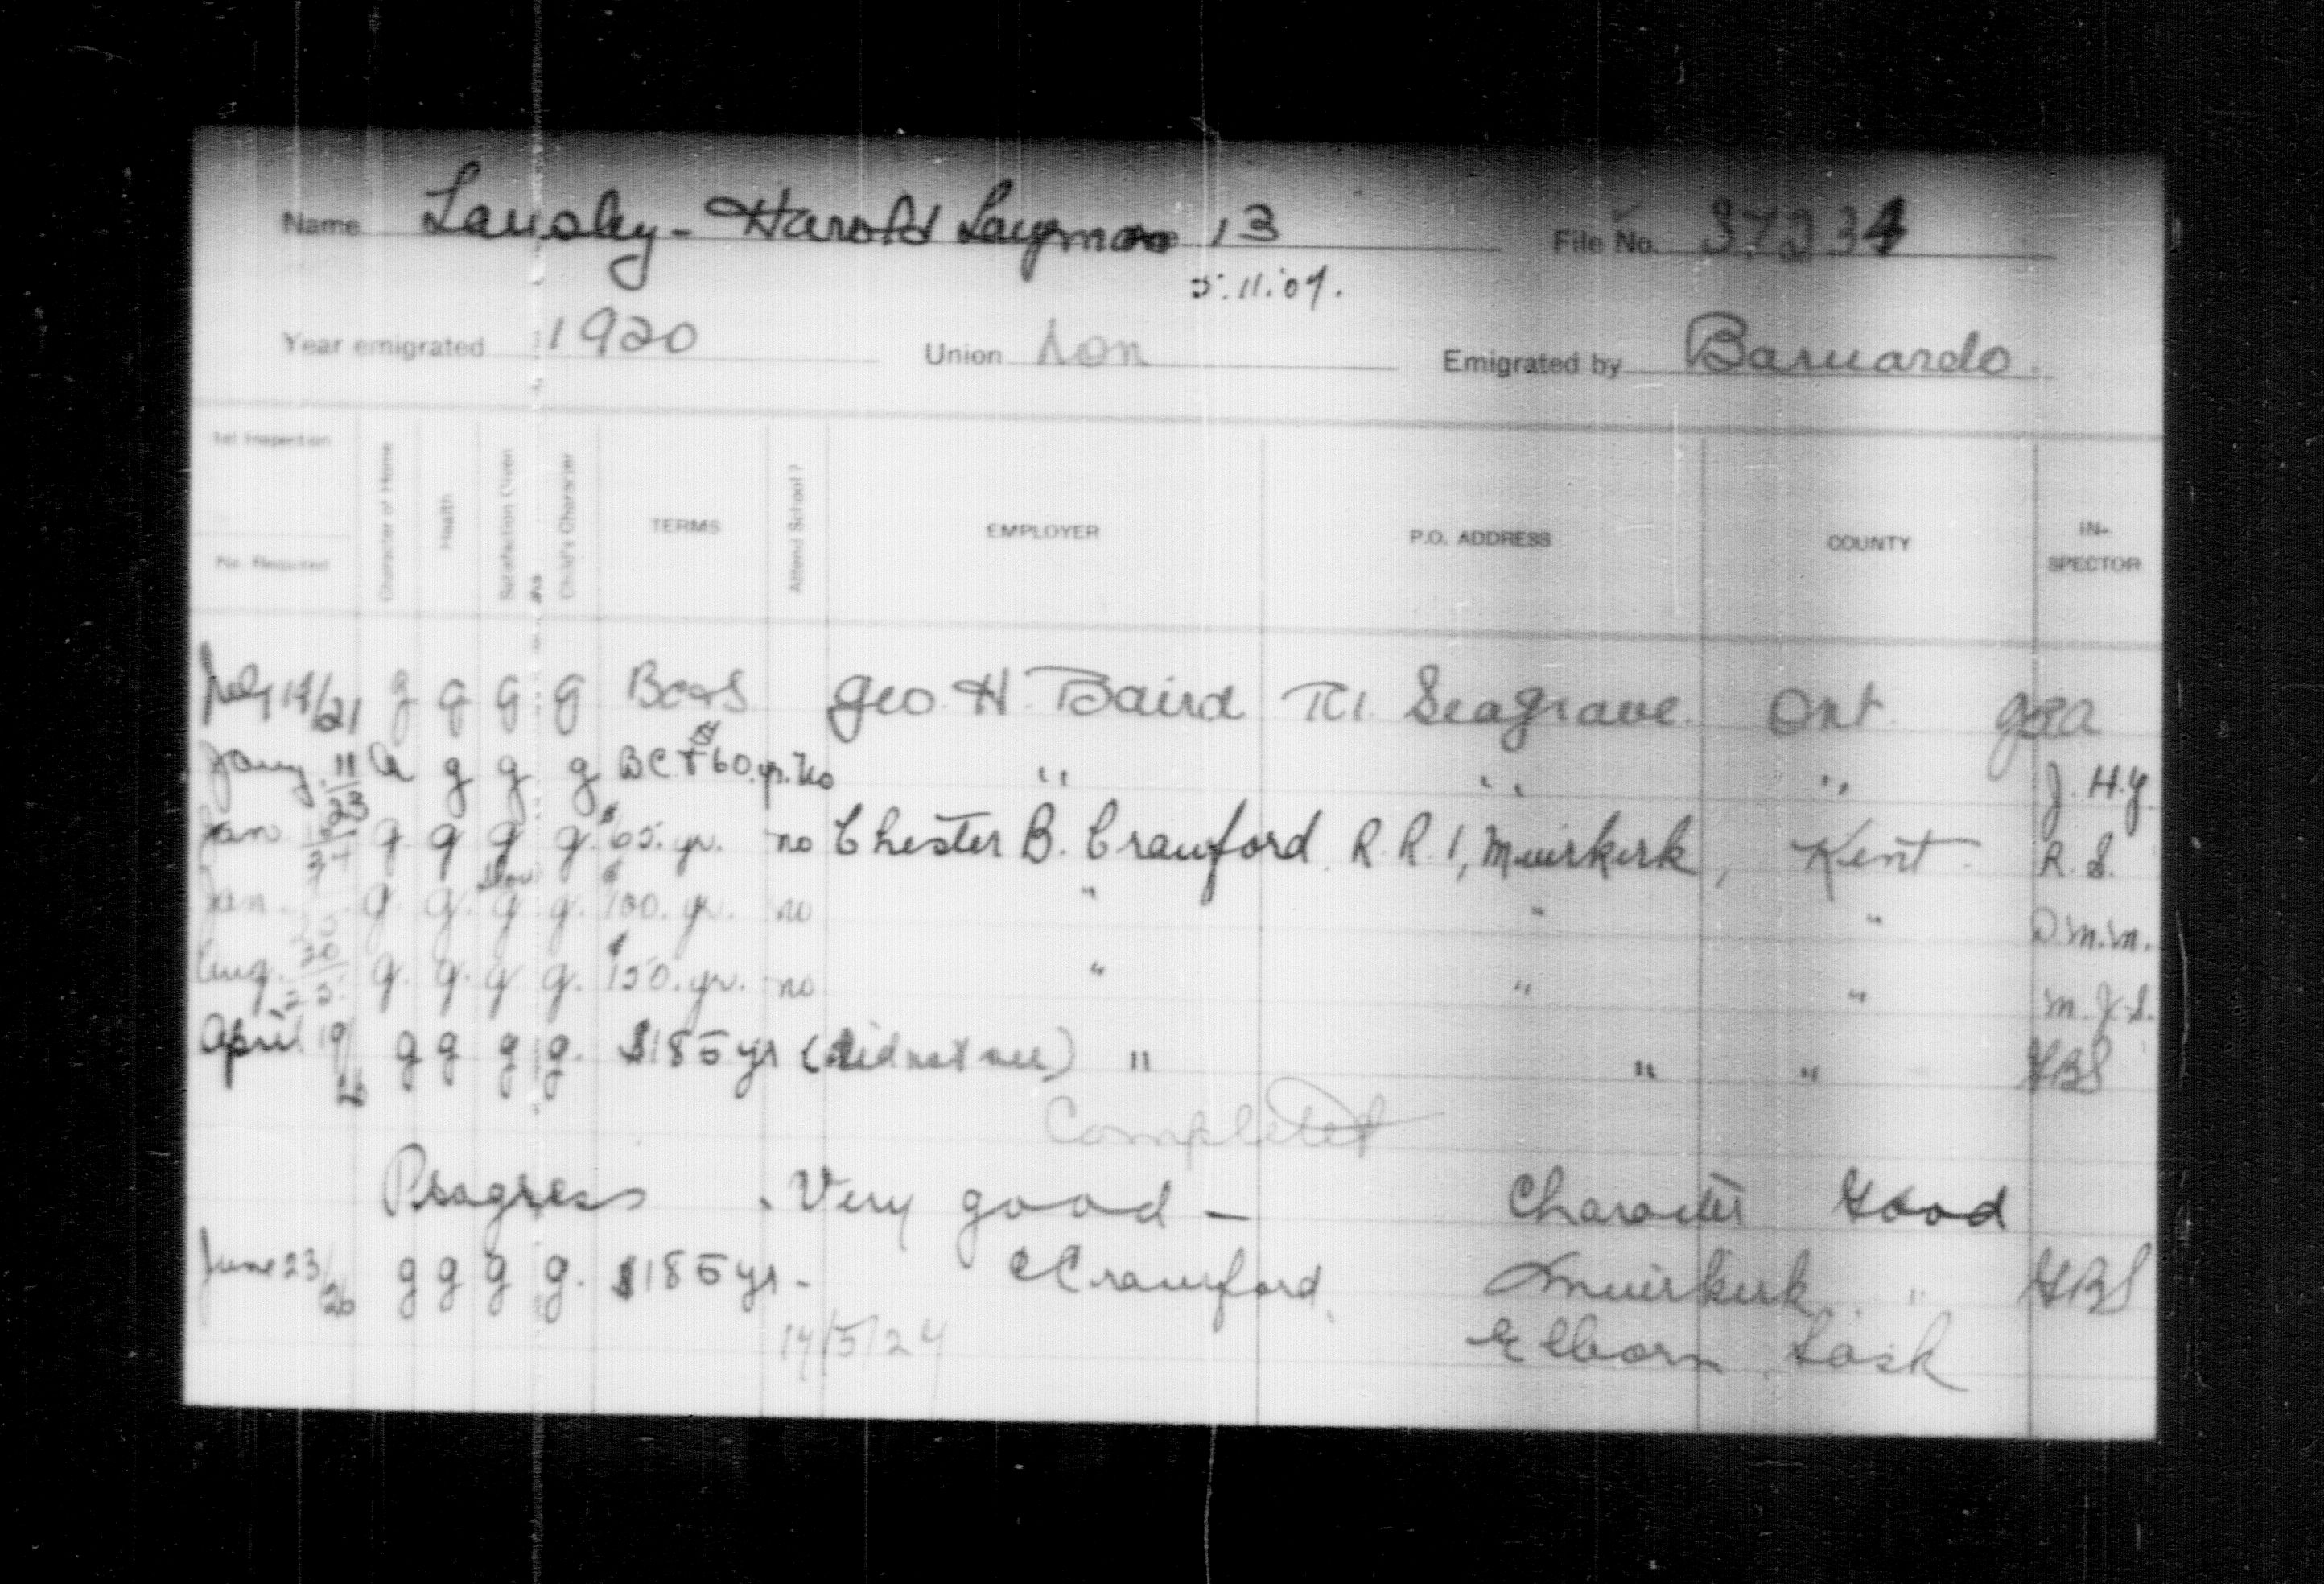 Name Lansley - Harold Layman 13 File No. 37234
5.11.07.
Year emigrated 1920 Union non Emigrated by Barnardo.
1st Inspection
No. Required
Character of Home Health Satisfaction Given Child's Character TERMS Attend School? EMPLOYER P.O. ADDRESS COUNTY IN-SPECTOR
July 14/21 g g g g BC&S Geo. H. Baird R1. Seagrave. Ont.
Jany. 11/23 g g g BC + $60. yr. no " " " J.H.G.
Jan. g. g g g. $65. yr. no Chester B. Crawford. R.R. 1, Muirkirk, Kent. R.S.
Jan. g. g. slow g. g. $100. yr. no " " " D.M.M.
Aug. 20/25. g. g. g g. $150. yr. no " " " M.J.S.
April 19/26 g g g g. $185 yr (did not see) " " " GBS
Completed
Progress - Very good - Character Good
June 23/26 g g g g. $185 yr - C Crawford, Muirkirk. " GBS
14/5/24 Elborn Sask